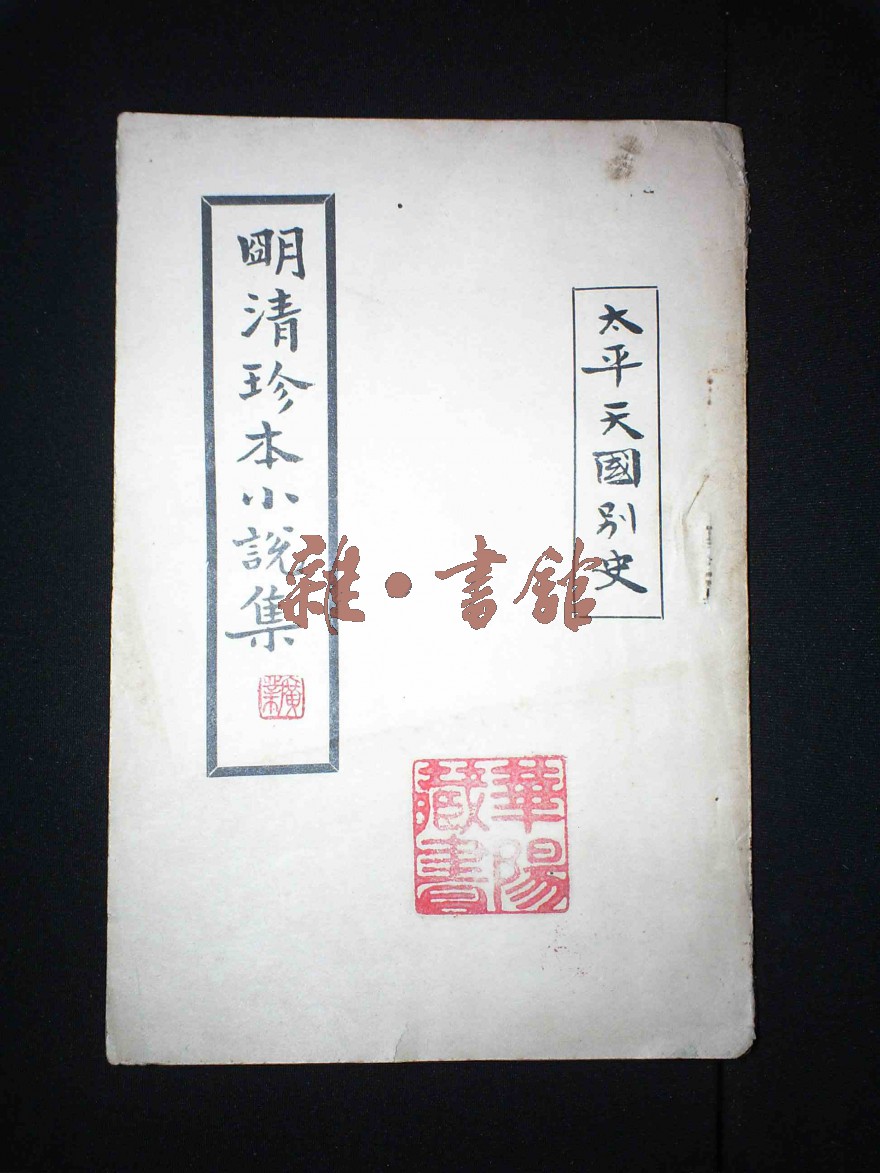 太平天國別史
明清珍本小說集
廣業
華陽藏書
雜·書館